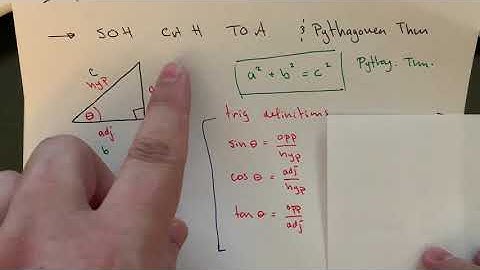 → SOH CAH TOA & Pythagorean Thm
c
hyp
a² + b² = c² Pythag. Thm.
θ
adj
b
trig definitions
sin θ = opp/hyp
cos θ = adj/hyp
tan θ = opp/adj